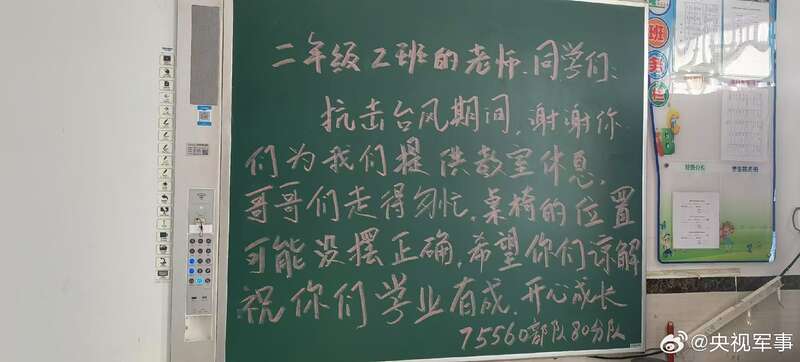 二年级2班的老师、同学们：
抗击台风期间，谢谢你
们为我们提供教室休息，
哥哥们走得匆忙，桌椅的位置
可能没摆正确，希望你们谅解
祝你们学业有成，开心成长
75560部队80分队
班
@央视军事